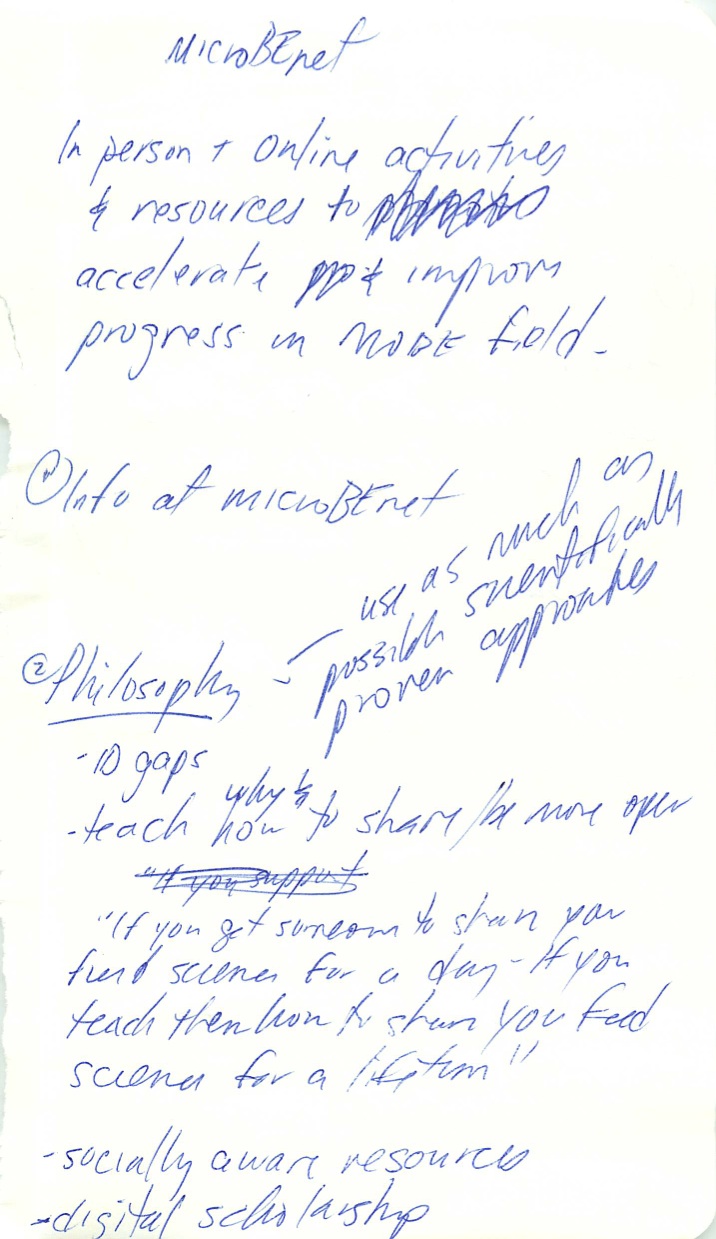 MicroBEnet
In person + Online activities
& resources to
accelerate & improve
progress in MOBE field.
① Info at microBEnet
② Philosophy -
use as much as
possible scientifically
proven approaches
- ID gaps
why &
- teach how to share/be more open
"If you support
"If you get someone to share you
feed science for a day - If you
teach them how to share you feed
science for a lifetime"
- socially aware resources
- digital scholarship